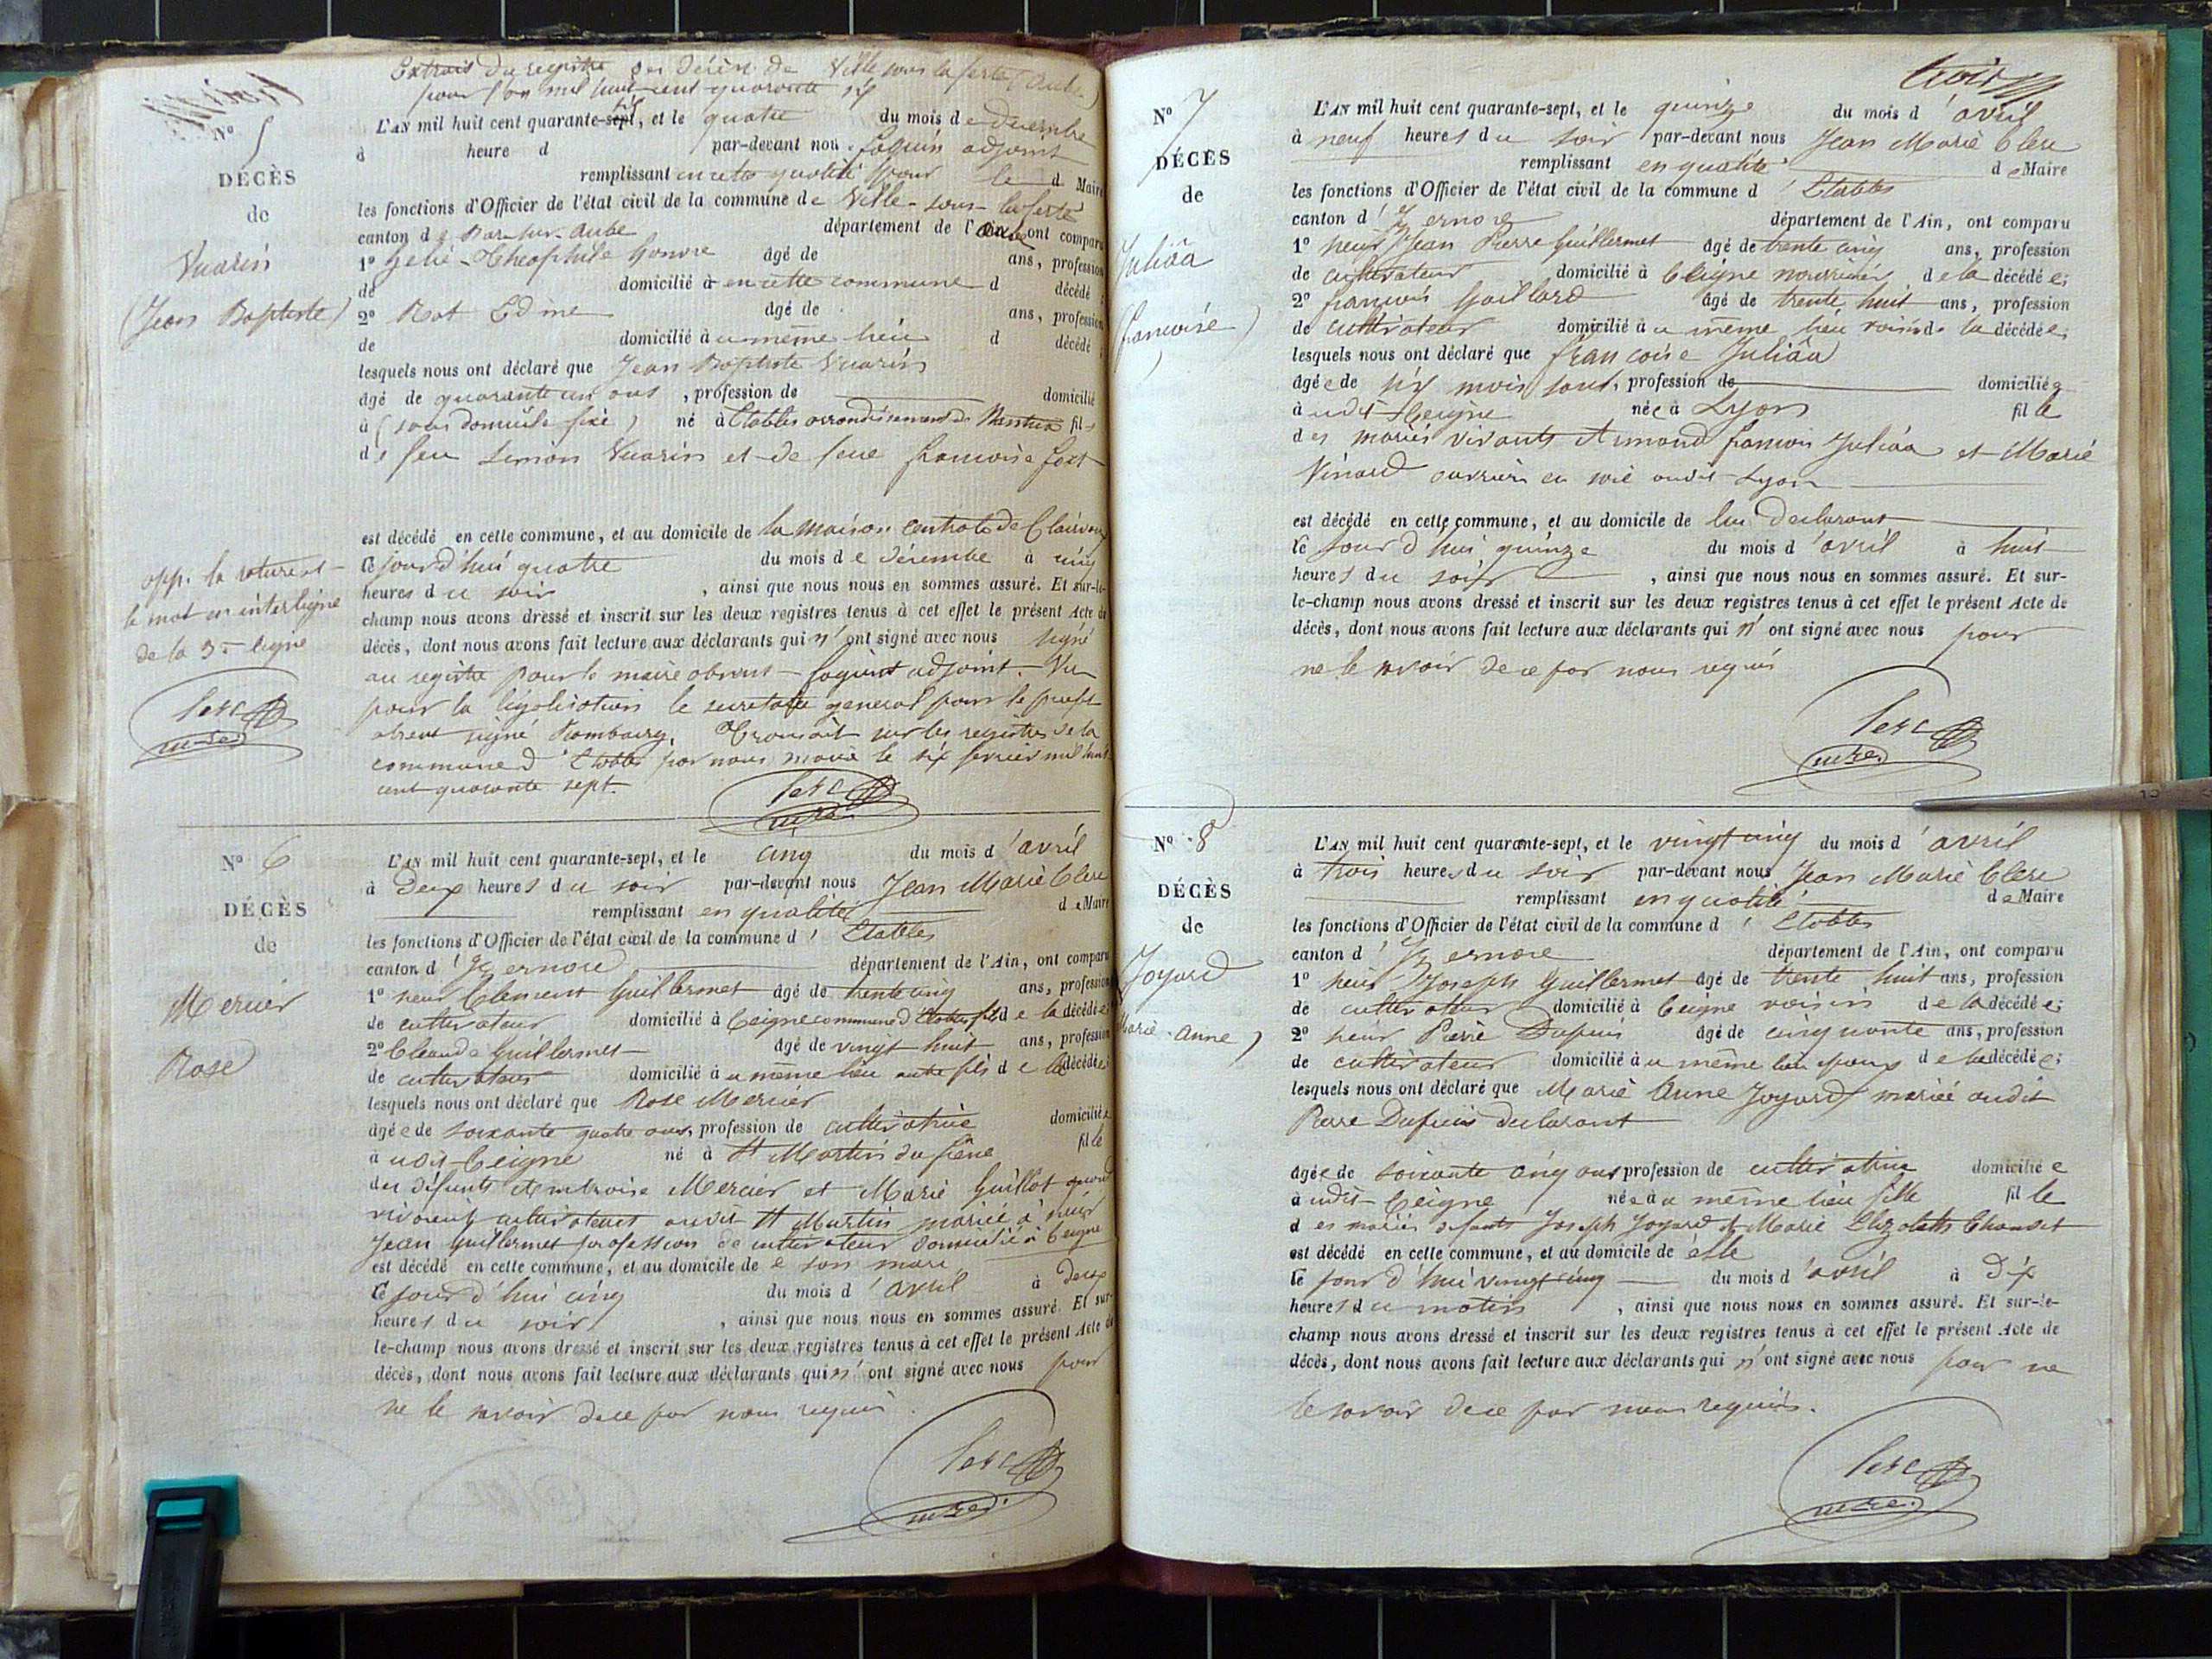 Extrait du registre des décès de Ville sous la ferté (Aube)
pour l'an mil huit cent quarante six
N° 5
DÉCÈS
de
Vuarin
(Jean Baptiste)
L'AN mil huit cent quarante-sept, six et le quatre du mois de décembre
à heure d par-devant nous foquin adjoint
remplissant en cette qualité pour le d Maire
les fonctions d'Officier de l'état civil de la commune de Ville-sous-la ferté
canton de Bar-sur-Aube département de l'Aube ont comparu
1° Théophile honoré âgé de ans, profession
de domicilié à en cette commune d décédé ;
2° Rat Edme âgé de ans, profession
de domicilié à u même lieu d décédé ;
lesquels nous ont déclaré que Jean Baptiste Vuarin
âgé de quarante un ans, profession de domicilié
à (sans domicile fixe) né à Etables arrondissement de Nantua fils
de feu Simon Vuarin et de feue françoise
est décédé en cette commune, et au domicile de la maison centrale de Clairvaux
ce jourd'hui quatre du mois de décembre à cinq
heures du soir, ainsi que nous nous en sommes assuré. Et sur-le-
champ nous avons dressé et inscrit sur les deux registres tenus à cet effet le présent Acte de
décès, dont nous avons fait lecture aux déclarants qui n'ont signé avec nous signé
au registre pour le maire absent foquin adjoint. Vu
pour la légalisation le secretaire general pour le prefet
absent signé. Transcrit sur les registres de la
commune d'Etables par nous maire le six fevrier mil huit
cent quarante sept.
app. la rature et
le mot en interligne
de la 3e ligne
Clerc
maire
Clerc
maire
N° 6
DÉCÈS
de
Mercier
Rose
L'AN mil huit cent quarante-sept, et le cinq du mois d'avril
à deux heures du soir par-devant nous Jean Marie Clerc
remplissant en qualité de Maire
les fonctions d'Officier de l'état civil de la commune d'Etables
canton d'Izernore département de l'Ain, ont comparu
1° sieur Clement Guillermet âgé de trente cinq ans, profession
de cultivateur domicilié à Ceigne commune d'Etables fils de la décédée ;
2° Claude Guillermet âgé de vingt huit ans, profession
de cultivateur domicilié à u même lieu autre fils de la décédée ;
lesquels nous ont déclaré que Rose Mercier
âgée de soixante quatre ans, profession de cultivatrice domiciliée
à udit Ceigne né à St Martin du frêne fille
des défunts Ambroise Mercier et Marie Guillot quand
vivaient cultivateurs audit St Martin mariée à sieur
Jean Guillermet profession de cultivateur domicilié à Ceigne
est décédé en cette commune, et au domicile de son mari
ce jourd'hui cinq du mois d'avril à deux
heures du soir, ainsi que nous nous en sommes assuré. Et sur-
le-champ nous avons dressé et inscrit sur les deux registres tenus à cet effet le présent Acte de
décès, dont nous avons fait lecture aux déclarants qui n'ont signé avec nous pour
ne le savoir de ce par nous requis.
Clerc
maire
trois
N° 7
DÉCÈS
de
Juliâa
françoise)
L'AN mil huit cent quarante-sept, et le quinze du mois d'avril
à neuf heures du soir par-devant nous Jean Marie Clerc
remplissant en qualité de Maire
les fonctions d'Officier de l'état civil de la commune d'Etables
canton d'Izernore département de l'Ain, ont comparu
1° sieur Jean Pierre Guillermet âgé de trente cinq ans, profession
de cultivateur domicilié à Ceigne nourricier de la décédée ;
2° françois Gaillard âgé de trente huit ans, profession
de cultivateur domicilié à u même lieu voisin de la décédée ;
lesquels nous ont déclaré que françoise Juliâa
âgée de six mois, profession de domiciliée
à udit Ceigne née à Lyon fille
des mariés vivants Armand françois Juliâa et Marie
Vinard ouvriers en soie audit Lyon
est décédé en cette commune, et au domicile de lui déclarant
ce jourd'hui quinze du mois d'avril à huit
heures du soir, ainsi que nous nous en sommes assuré. Et sur-
le-champ nous avons dressé et inscrit sur les deux registres tenus à cet effet le présent Acte de
décès, dont nous avons fait lecture aux déclarants qui n'ont signé avec nous pour
ne le savoir de ce par nous requis
Clerc
maire
N° 8
DÉCÈS
de
Joyard
Marie-Anne)
L'AN mil huit cent quarante-sept, et le vingt cinq du mois d'avril
à trois heures du soir par-devant nous Jean Marie Clerc
remplissant en qualité de Maire
les fonctions d'Officier de l'état civil de la commune d'Etables
canton d'Izernore département de l'Ain, ont comparu
1° sieur Joseph Guillermet âgé de trente huit ans, profession
de cultivateur domicilié à Ceigne voisin de la décédée ;
2° sieur Pierre Dupuis âgé de cinquante ans, profession
de cultivateur domicilié à u même lieu époux de la décédée ;
lesquels nous ont déclaré que Marie Anne Joyard mariée audit
Pierre Dupuis déclarant
âgée de soixante cinq ans profession de cultivatrice domiciliée
à udit Ceigne née à u même lieu fille fille
des mariés défunts Joseph Joyard et Marie Elizabeth
est décédé en cette commune, et au domicile de elle
ce jourd'hui vingt cinq du mois d'avril à dix
heures du matin, ainsi que nous nous en sommes assuré. Et sur-le-
champ nous avons dressé et inscrit sur les deux registres tenus à cet effet le présent Acte de
décès, dont nous avons fait lecture aux déclarants qui n'ont signé avec nous pour ne
le savoir de ce par nous requis.
Clerc
maire